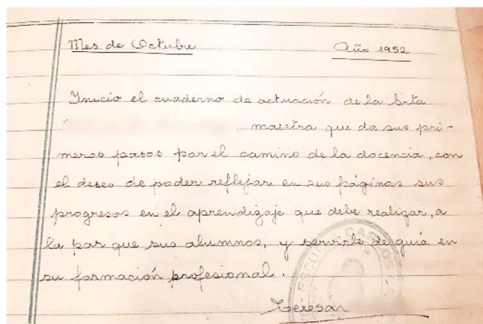 Mes de Octubre Año 1952
Inicio el cuaderno de actuación de la Srta
maestra que da sus pri-
meros pasos por el camino de la docencia, con
el deseo de poder reflejar en sus páginas sus
progresos en el aprendizaje que debe realizar, a
la par que sus alumnos, y servirle de guía en
su formación profesional.
Teresa